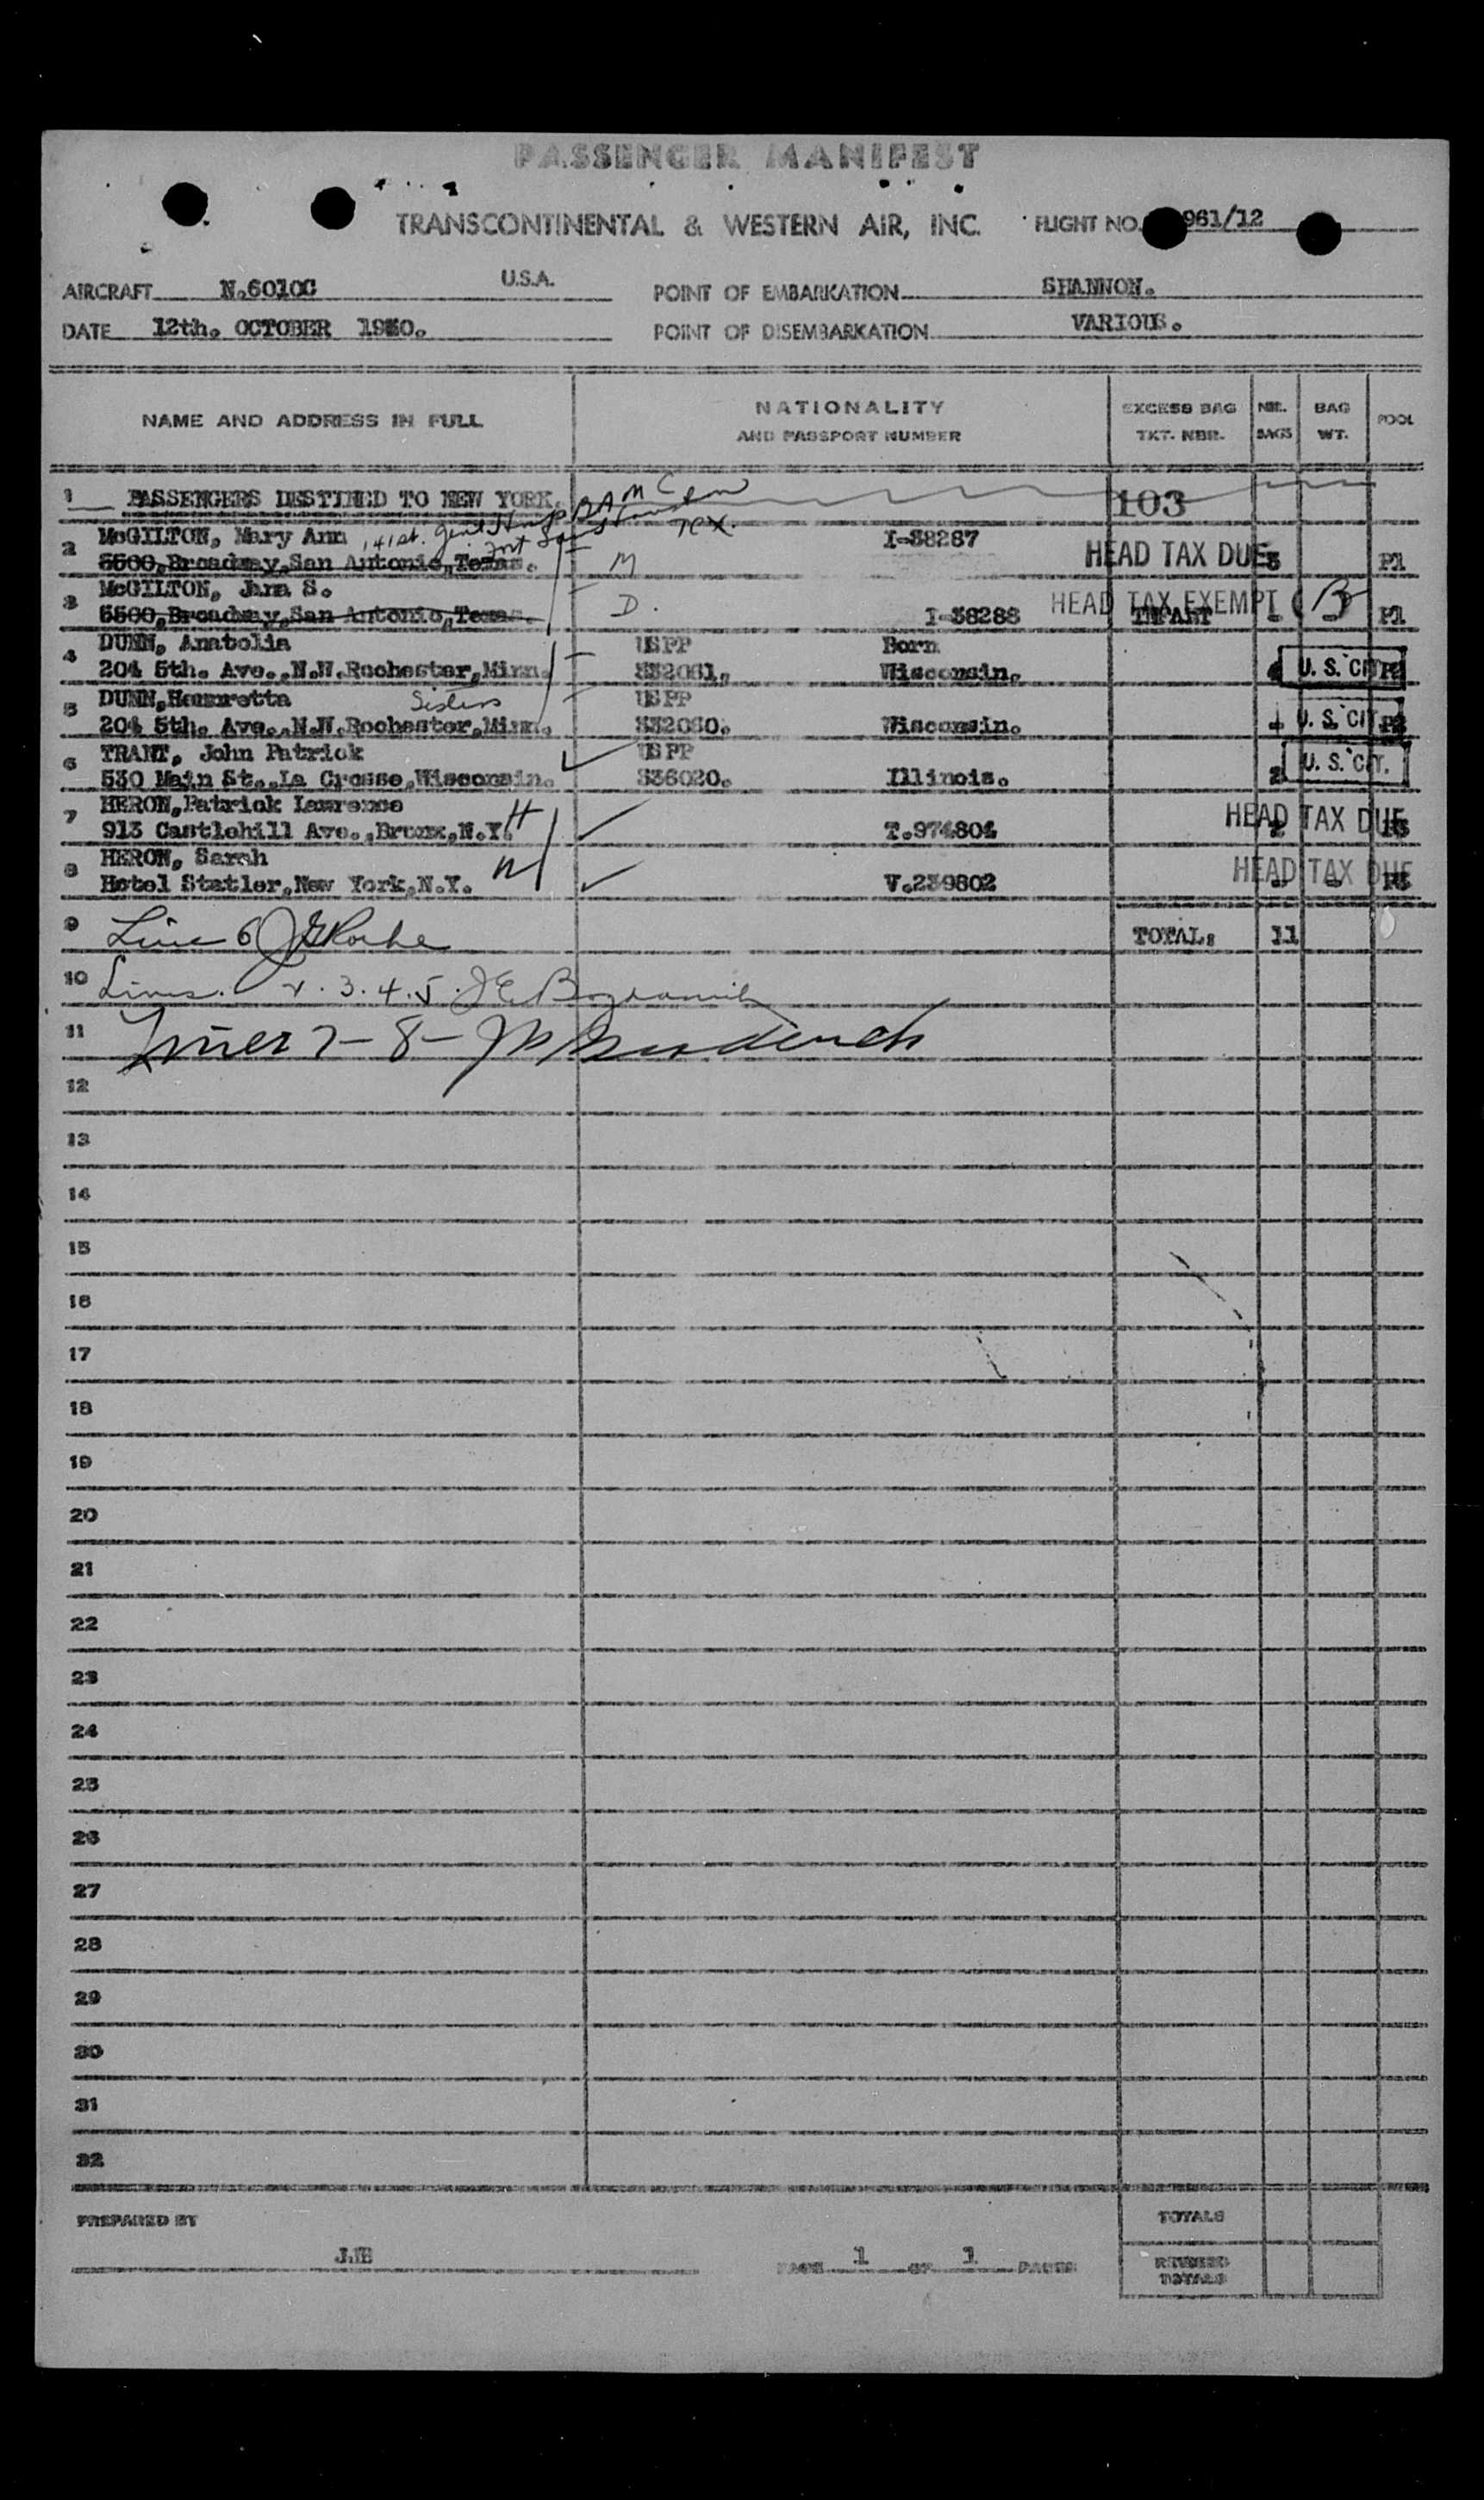 PASSENGER MANIFEST
TRANSCONTINENTAL & WESTERN AIR, INC. FLIGHT NO. 961/12
AIRCRAFT N.6010C U.S.A. POINT OF EMBARKATION SHANNON.
DATE 12th. OCTOBER 1950. POINT OF DISEMBARKATION VARIOUS.
NAME AND ADDRESS IN FULL NATIONALITY AND PASSPORT NUMBER EXCESS BAG TKT. NBR. NBR. BAGS BAG WT. POOL
1 PASSENGERS DESTINED TO NEW YORK. 103
141st. Genl Hosp BAMC
Fort Sam Houston Tex.
2 McGILTON, Mary Ann I-38287
5500, Broadway, San Antonio, Texas. M HEAD TAX DUE 3 P1
3 McGILTON, Jana S.
5500, Broadway, San Antonio, Texas. D. I-38288 HEAD TAX EXEMPT INFANT - B - P1
4 DUNN, Anatolia USPP Born
204 5th. Ave., N.W. Rochester, Minn. 332061. Wisconsin. U. S. CIT. P2
5 DUNN, Hemuretta Sisters USPP
204 5th. Ave., N.W. Rochester, Minn. 332060. Wisconsin. U. S. CIT. P2
6 TRANT, John Patrick USPP
530 Main St., La Crosse, Wisconsin. 336020. Illinois. 2 U. S. CIT.
7 HERON, Patrick Lawrence H
913 Castlehill Ave., Bronx, N.Y. T.974804 2 HEAD TAX DUE P3
8 HERON, Sarah
Hotel Statler, New York, N.Y. W V.239802 - HEAD TAX DUE - P3
9 Line 6 TOTAL: 11
10 Lines. 2. 3. 4. 5.
11 Lines 7-8-
12
13
14
15
16
17
18
19
20
21
22
23
24
25
26
27
28
29
30
31
32
PREPARED BY TOTALS
PAGE 1 OF 1 PAGES REVISED TOTALS